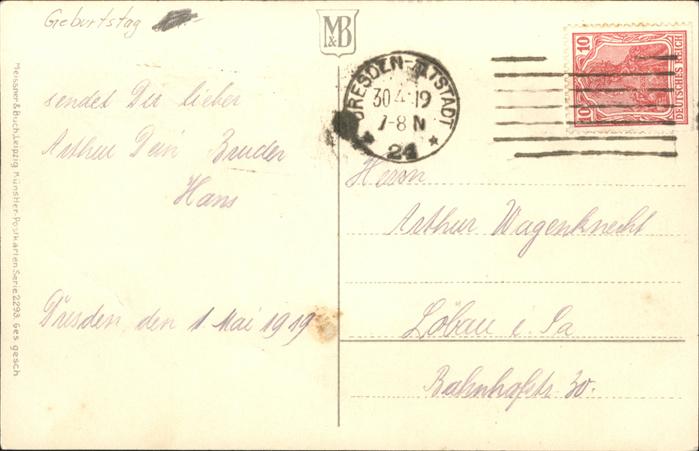 Geburtstag
sendet Dir lieber
Arthur Dein Bruder
Hans
Dresden, den 1 Mai 1919
Meissner & Buch, Leipzig Künstler-Postkarten Serie 2293. Ges. gesch
M&B
DRESDEN-ALTSTADT
30 4 19
7-8 N
* 24 *
10 10
DEUTSCHES REICH
Herrn
Arthur Wagenknecht
Löbau i. Sa
Bahnhofstr 30.